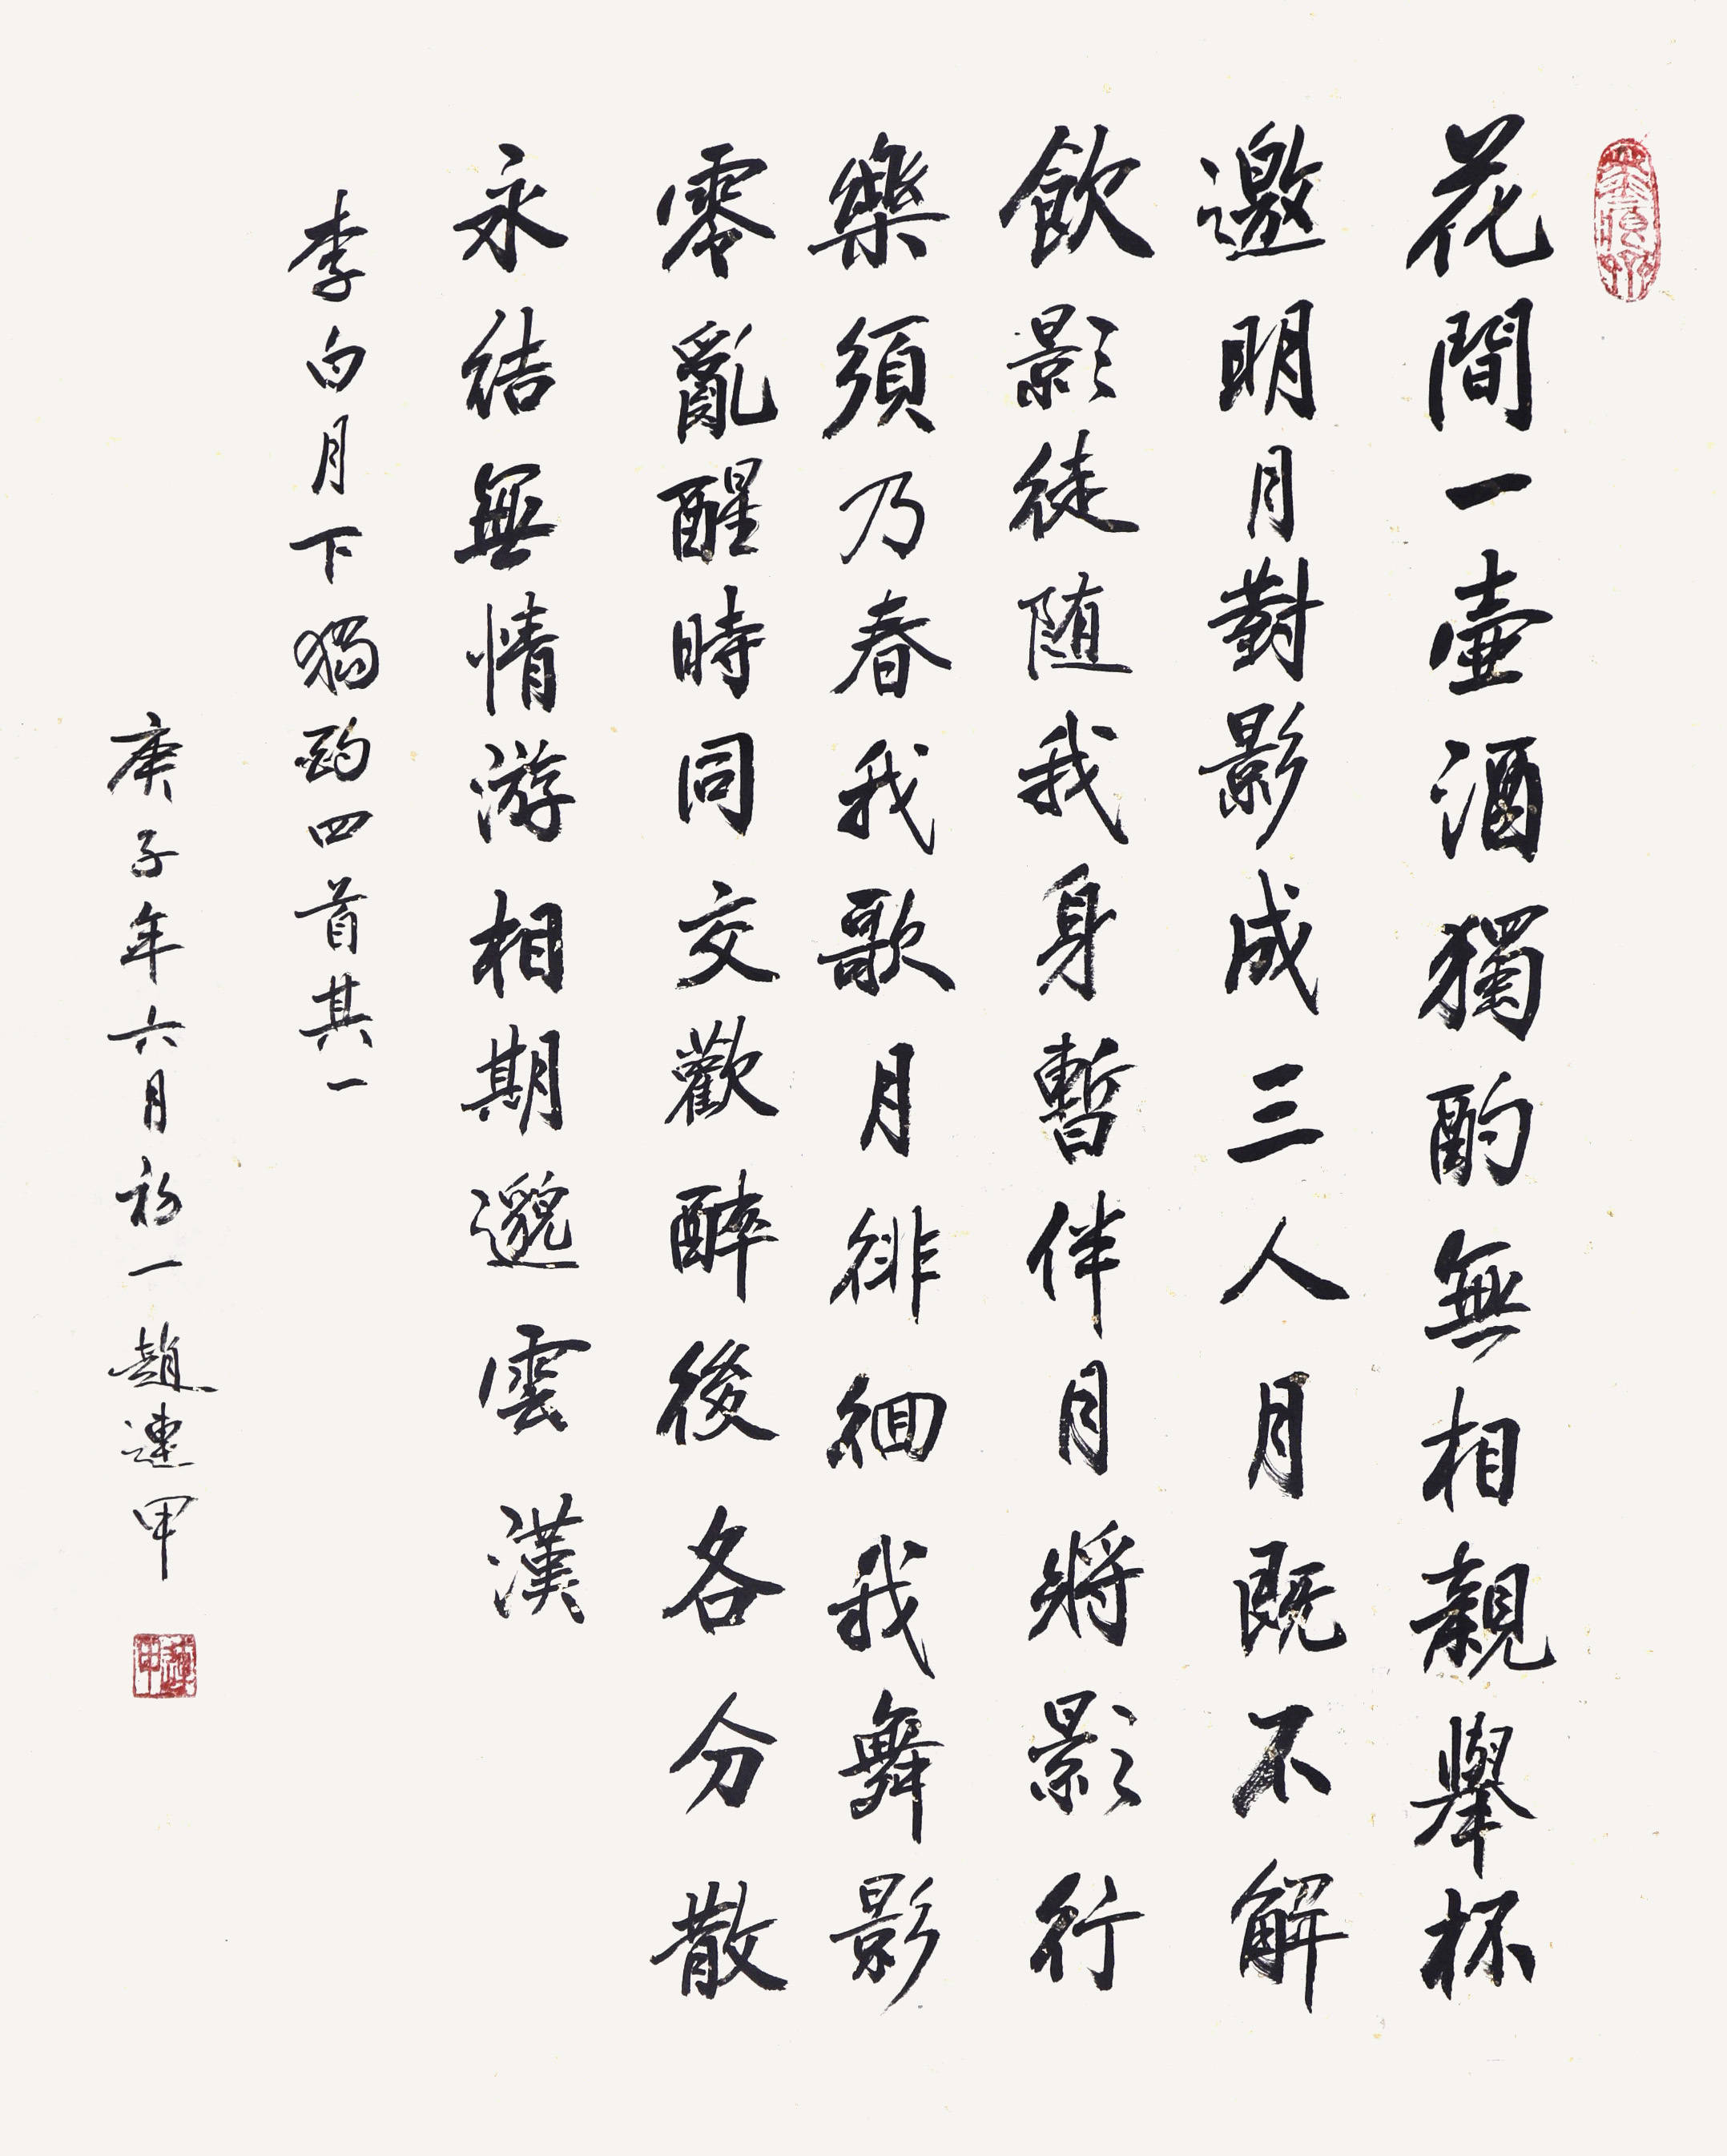 花間一壺酒獨酌無相親舉杯
邀明月對影成三人月既不解
飲影徒随我身暫伴月將影行
樂須乃春我歌月徘徊我舞影
零亂醒時同交歡醉後各分散
永結無情游相期邈雲漢
李白月下獨酌四首其一
庚子年六月初一趙連甲
連甲